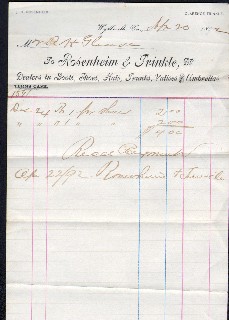 Wytheville, Va., Apr 20 1892
Mr
To Rosenheim & Trinkle, Dr
Dealers in Boots, Shoes, Hats, Trunks, Valises & Umbrellas
TERMS CASH.
1891
Dec 24 To 1 pr Shoes 2.00
" " " 1 " " 2.00
$ 4.00
Recd Payment
Apr 22/92 Rosenheim & Trinkle